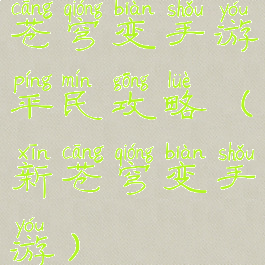 cāng qióng biàn shǒu yóu
苍穹变手游
píng mín gōng lüè
平民攻略（
xīn cāng qióng biàn shǒu
新苍穹变手
yóu
游）